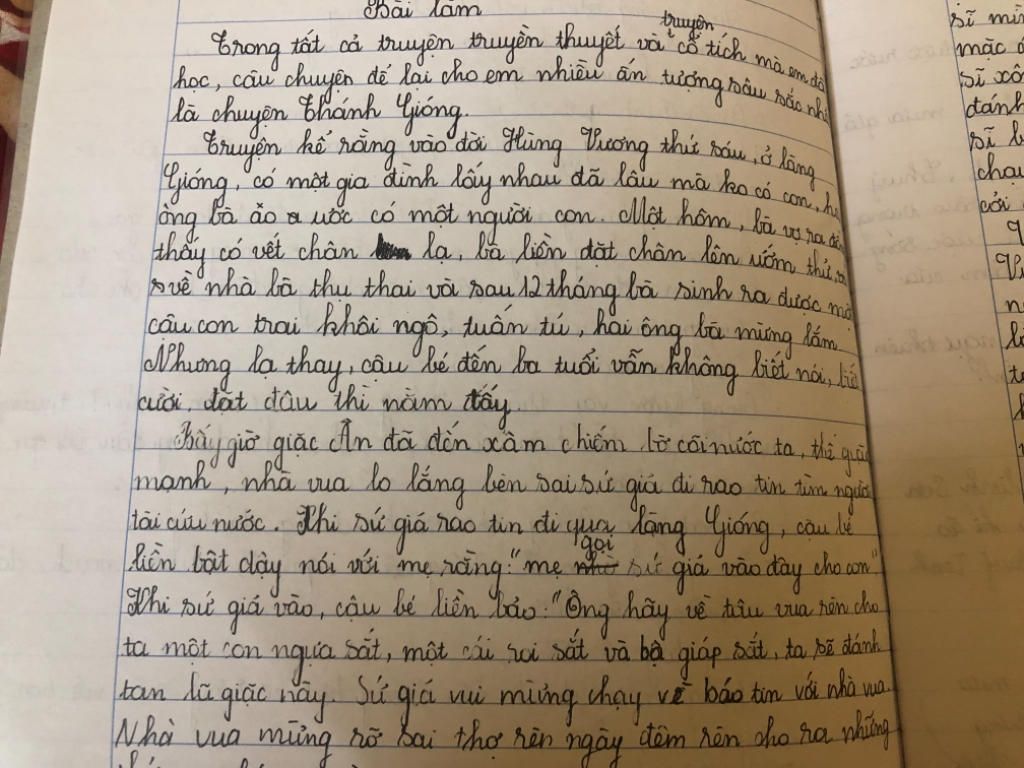 Bài làm
Trong tất cả truyện truyền thuyết và truyện cổ tích mà em đã
học, câu chuyện để lại cho em nhiều ấn tượng sâu sắc nhất
là chuyện Thánh Gióng.
Truyện kể rằng vào đời Hùng Vương thứ sáu, ở làng
Gióng, có một gia đình lấy nhau đã lâu mà ko có con, hai
ông bà ao ước có một người con. Một hôm, bà vợ ra đồng
thấy có vết chân lạ, bà liền đặt chân lên ướm thử,
về nhà bà thụ thai và sau 12 tháng bà sinh ra được một
cậu con trai khôi ngô, tuấn tú, hai ông bà mừng lắm
Nhưng lạ thay, cậu bé đến ba tuổi vẫn không biết nói, biết
cười, đặt đâu thì nằm đấy
Bấy giờ giặc Ân đã đến xâm chiếm bờ cõi nước ta, thế giặc
mạnh, nhà vua lo lắng bèn sai sứ giả đi rao tin tìm người
tài cứu nước. Khi sứ giả rao tin đi qua làng Gióng, cậu bé
liền bật dậy nói với mẹ rằng: "mẹ gọi sứ giả vào đây cho con"
Khi sứ giả vào, cậu bé liền bảo: "Ông hãy về tâu vua rèn cho
ta một con ngựa sắt, một cái roi sắt và bộ giáp sắt, ta sẽ đánh
tan lũ giặc này. Sứ giả vui mừng chạy về báo tin với nhà vua.
Nhà vua mừng rỡ sai thợ rèn ngày đêm rèn cho ra những
sĩ
mặc
sĩ
đánh
sĩ
chạy
cởi